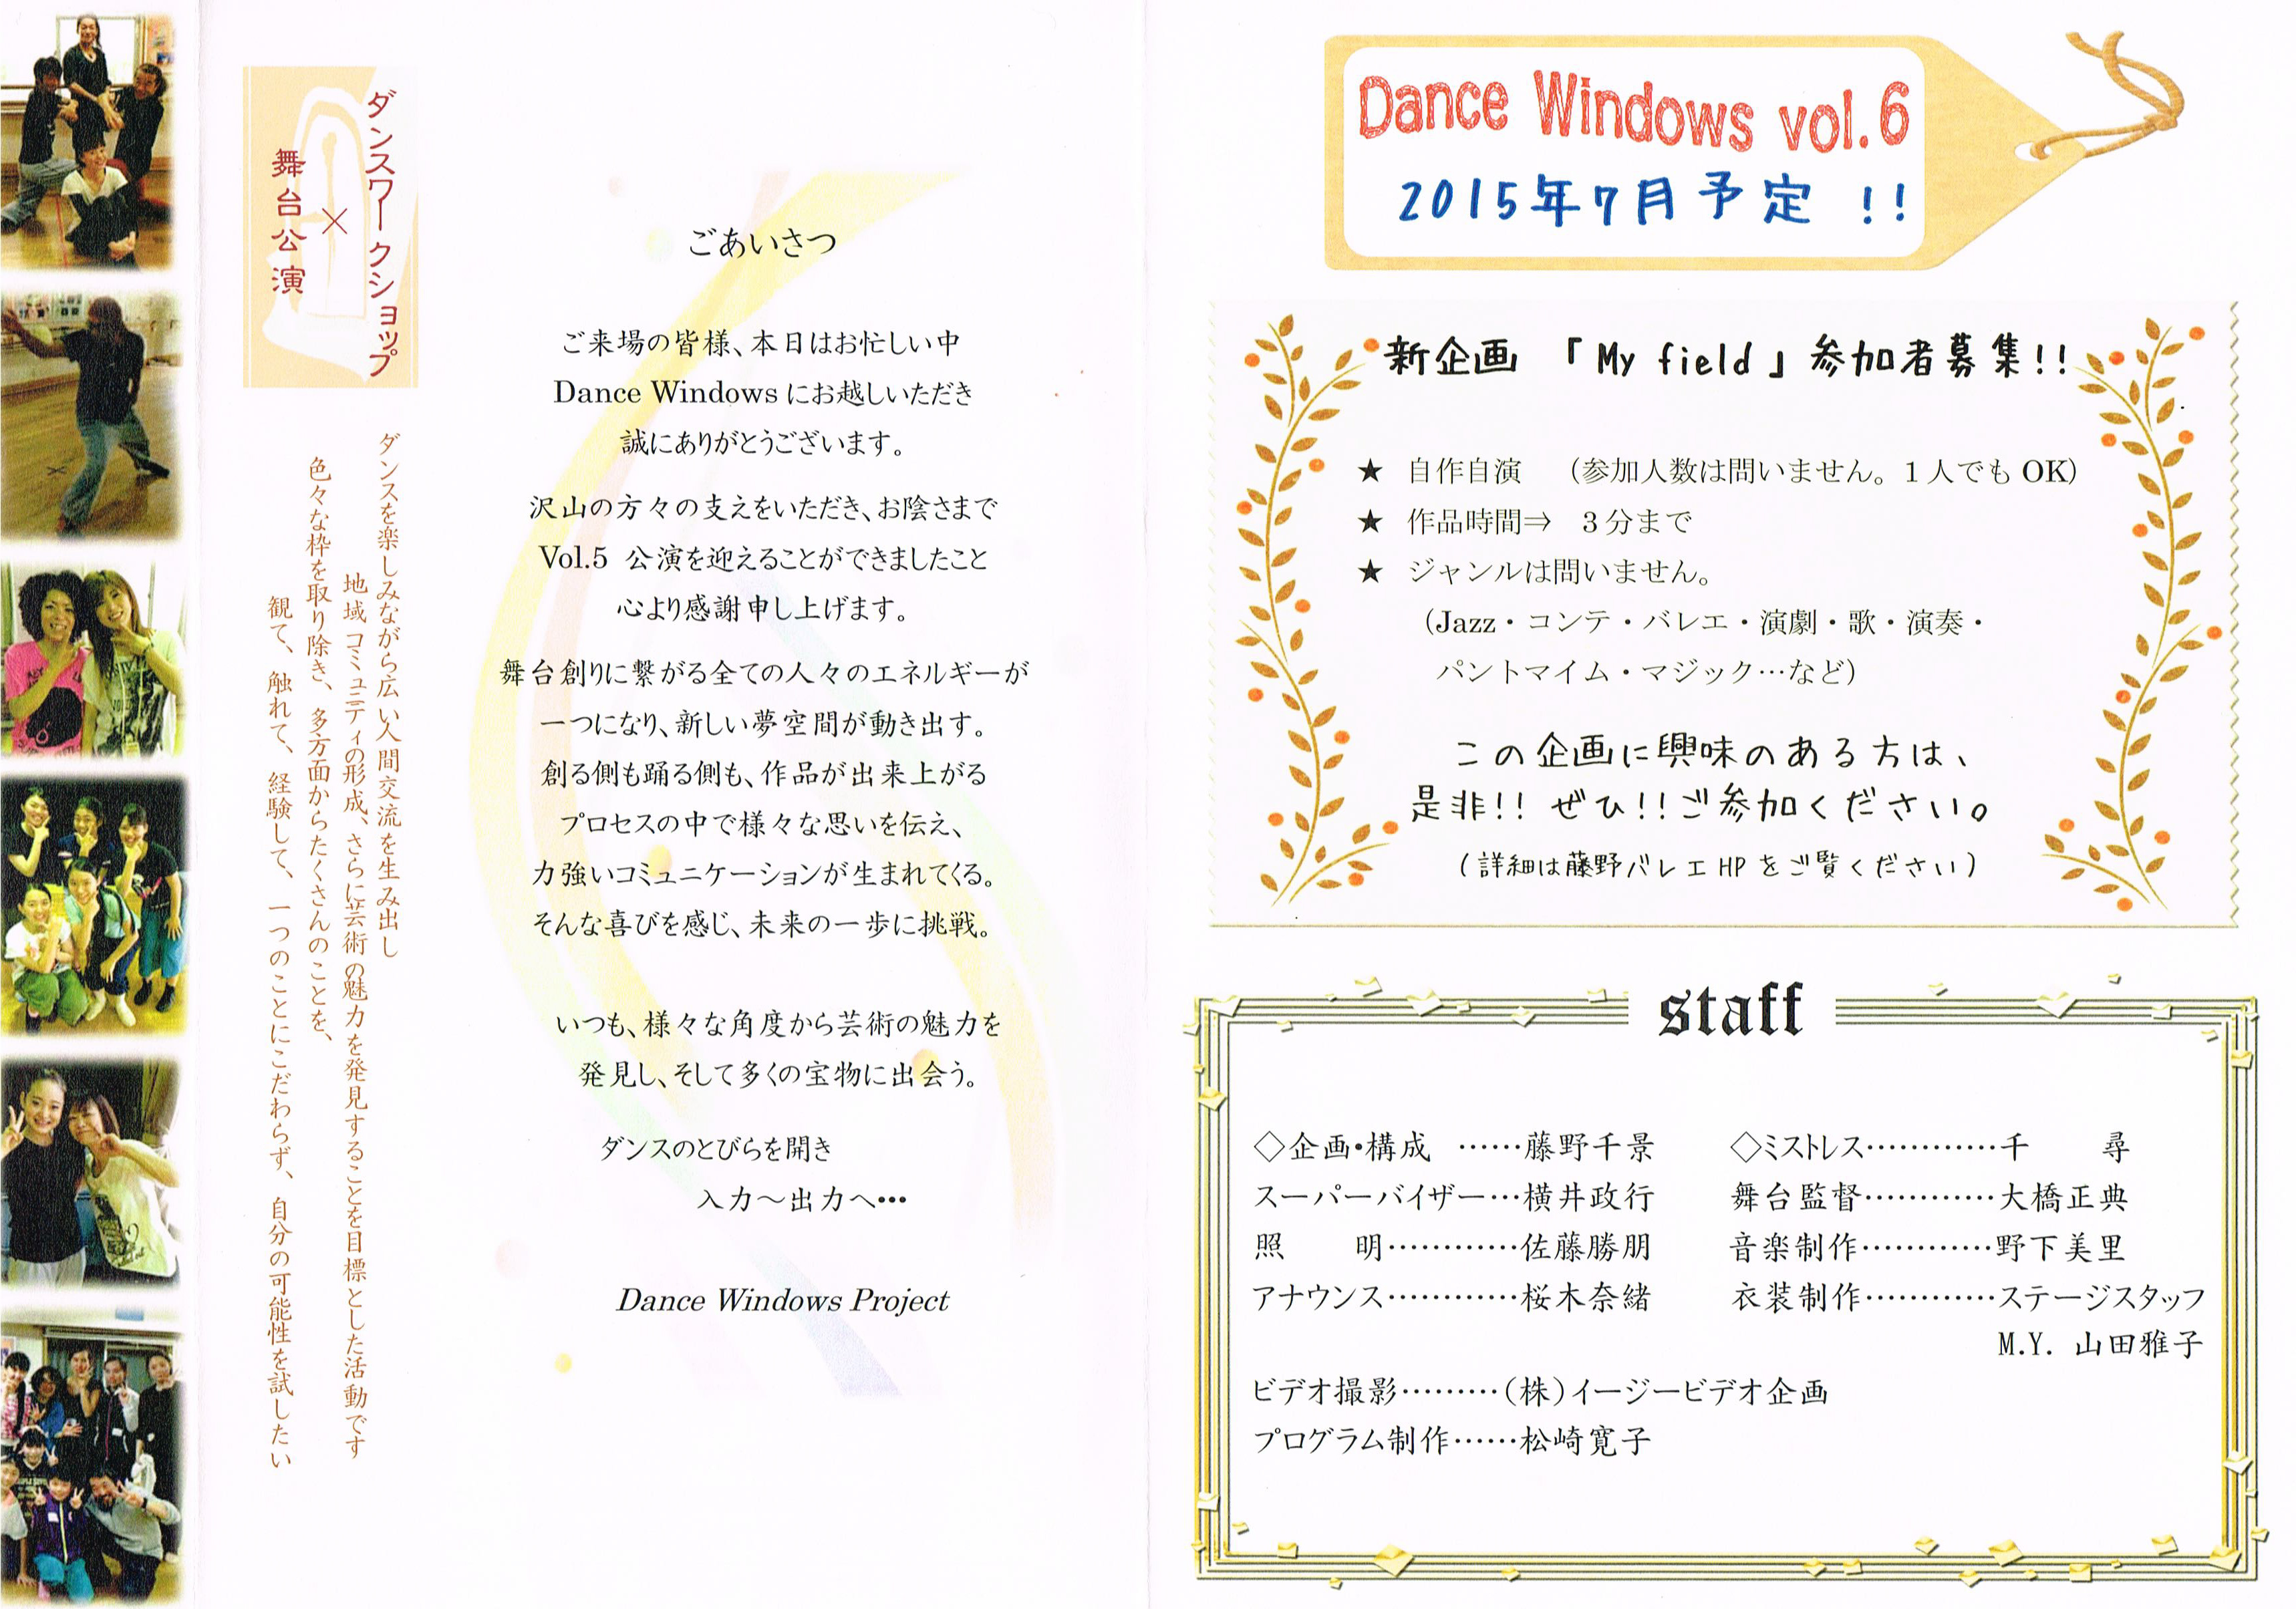 ダンスワークショップ
×
舞台公演
ダンスを楽しみながら広い人間交流を生み出し
地域コミュニティの形成、さらに芸術の魅力を発見することを目標とした活動です
色々な枠を取り除き、多方面からたくさんのことを、
観て、触れて、経験して、一つのことにこだわらず、自分の可能性を試したい
ごあいさつ
ご来場の皆様、本日はお忙しい中
Dance Windows にお越しいただき
誠にありがとうございます。
沢山の方々の支えをいただき、お陰さまで
Vol.5 公演を迎えることができましたこと
心より感謝申し上げます。
舞台創りに繋がる全ての人々のエネルギーが
一つになり、新しい夢空間が動き出す。
創る側も踊る側も、作品が出来上がる
プロセスの中で様々な思いを伝え、
力強いコミュニケーションが生まれてくる。
そんな喜びを感じ、未来の一歩に挑戦。
いつも、様々な角度から芸術の魅力を
発見し、そして多くの宝物に出会う。
ダンスのとびらを開き
入力〜出力へ•••
Dance Windows Project
Dance Windows vol.6
2015年7月予定 !!
新企画 「My field」参加者募集!!
★ 自作自演 （参加人数は問いません。1人でも OK）
★ 作品時間⇒ 3分まで
★ ジャンルは問いません。
（Jazz・コンテ・バレエ・演劇・歌・演奏・
パントマイム・マジック…など）
この企画に興味のある方は、
是非!! ぜひ!!ご参加ください。
（詳細は藤野バレエHPをご覧ください）
staff
◇企画•構成 ……藤野千景
スーパーバイザー…横井政行
照 明…………佐藤勝朋
アナウンス…………桜木奈緒
◇ミストレス…………千 尋
舞台監督…………大橋正典
音楽制作…………野下美里
衣装制作…………ステージスタッフ
M.Y. 山田雅子
ビデオ撮影………（株）イージービデオ企画
プログラム制作……松崎寛子